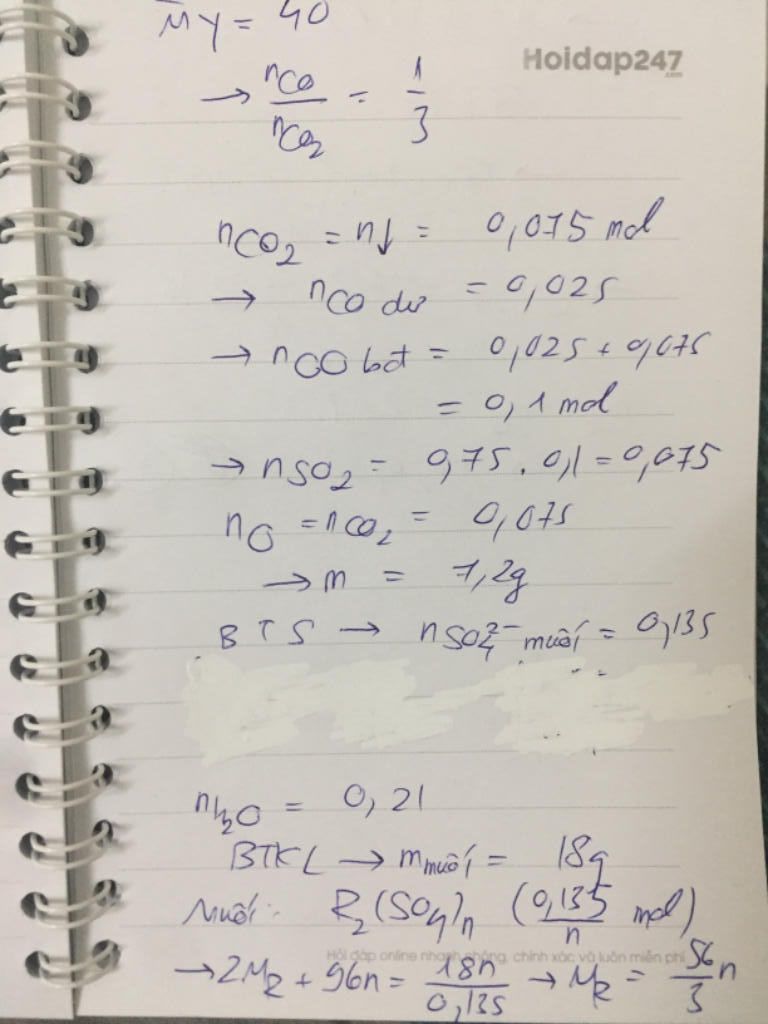 M̄Y = 40
Hoidap247
.com
→ nCO / nCO2 = 1/3
nCO2 = n↓ = 0,075 mol
→ nCO dư = 0,025
→ nCO bđ = 0,025 + 0,075
= 0,1 mol
→ nSO2 = 0,75 . 0,1 = 0,075
nO = nCO2 = 0,075
→ m = 7,2g
BTS → nSO4²⁻ muối = 0,135
nH2O = 0,21
BTKL → m muối = 18g
Muối: R2(SO4)n (0,135/n mol)
Hỏi đáp online nhanh chóng, chính xác và luôn miễn phí
→ 2MR + 96n = 18n/0,135 → MR = 56/3 n